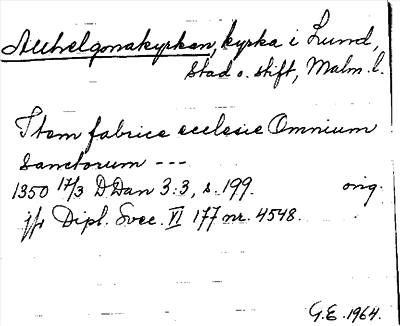 Allhelgonakyrkan, kyrka i Lund,
Stad o. stift, Malm. l.
Item fabrice ecclesie Omnium
Sanctorum ---
1350 17/3 DDan 3:3, s. 199. orig.
jfr Dipl. Svec. VI 177 nr. 4548.
G.E. 1964.